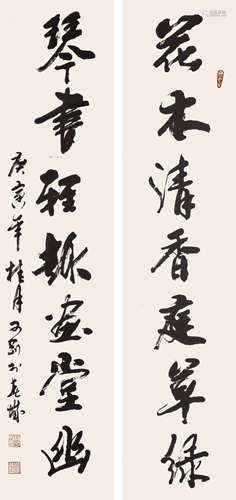 花木清香庭草绿
琴书雅趣画堂幽
庚寅年桂月可刚书于长城